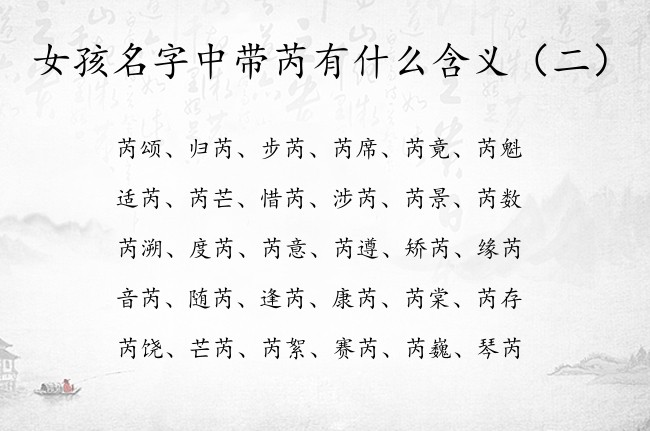 女孩名字中带芮有什么含义（二）
芮颂、归芮、步芮、芮席、芮竟、芮魁
适芮、芮芒、惜芮、涉芮、芮景、芮数
芮溯、度芮、芮意、芮遵、矫芮、缘芮
音芮、随芮、逢芮、康芮、芮棠、芮存
芮饶、芒芮、芮絮、赛芮、芮巍、琴芮